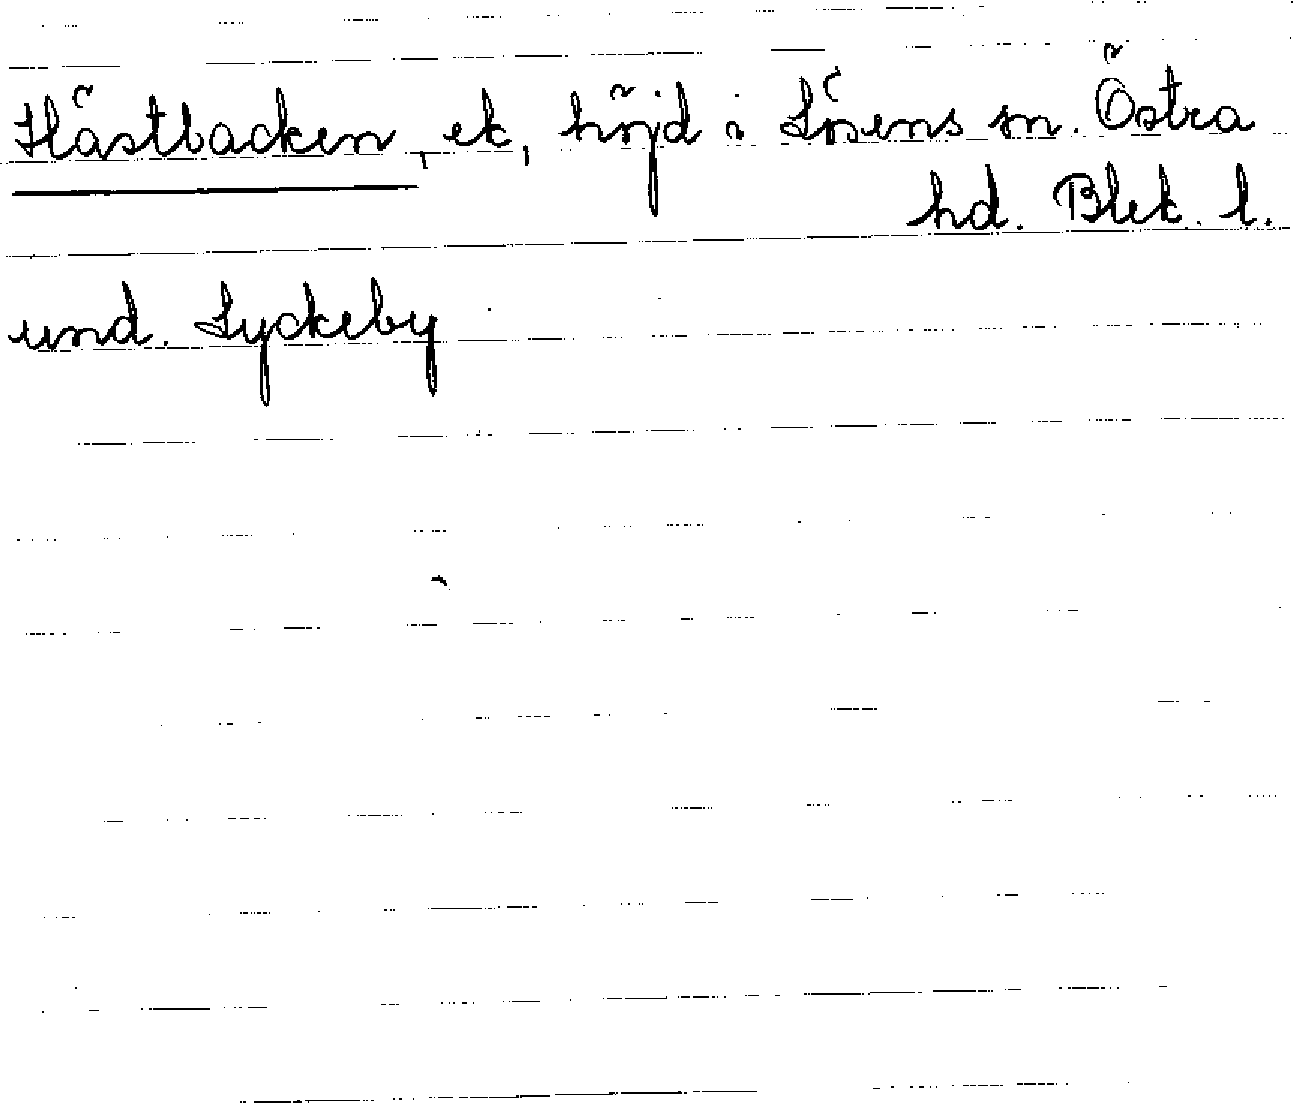 Hästbacken, ek, höjd i Lösens sn. Östra
hd. Blek. l.
und. Lyckeby